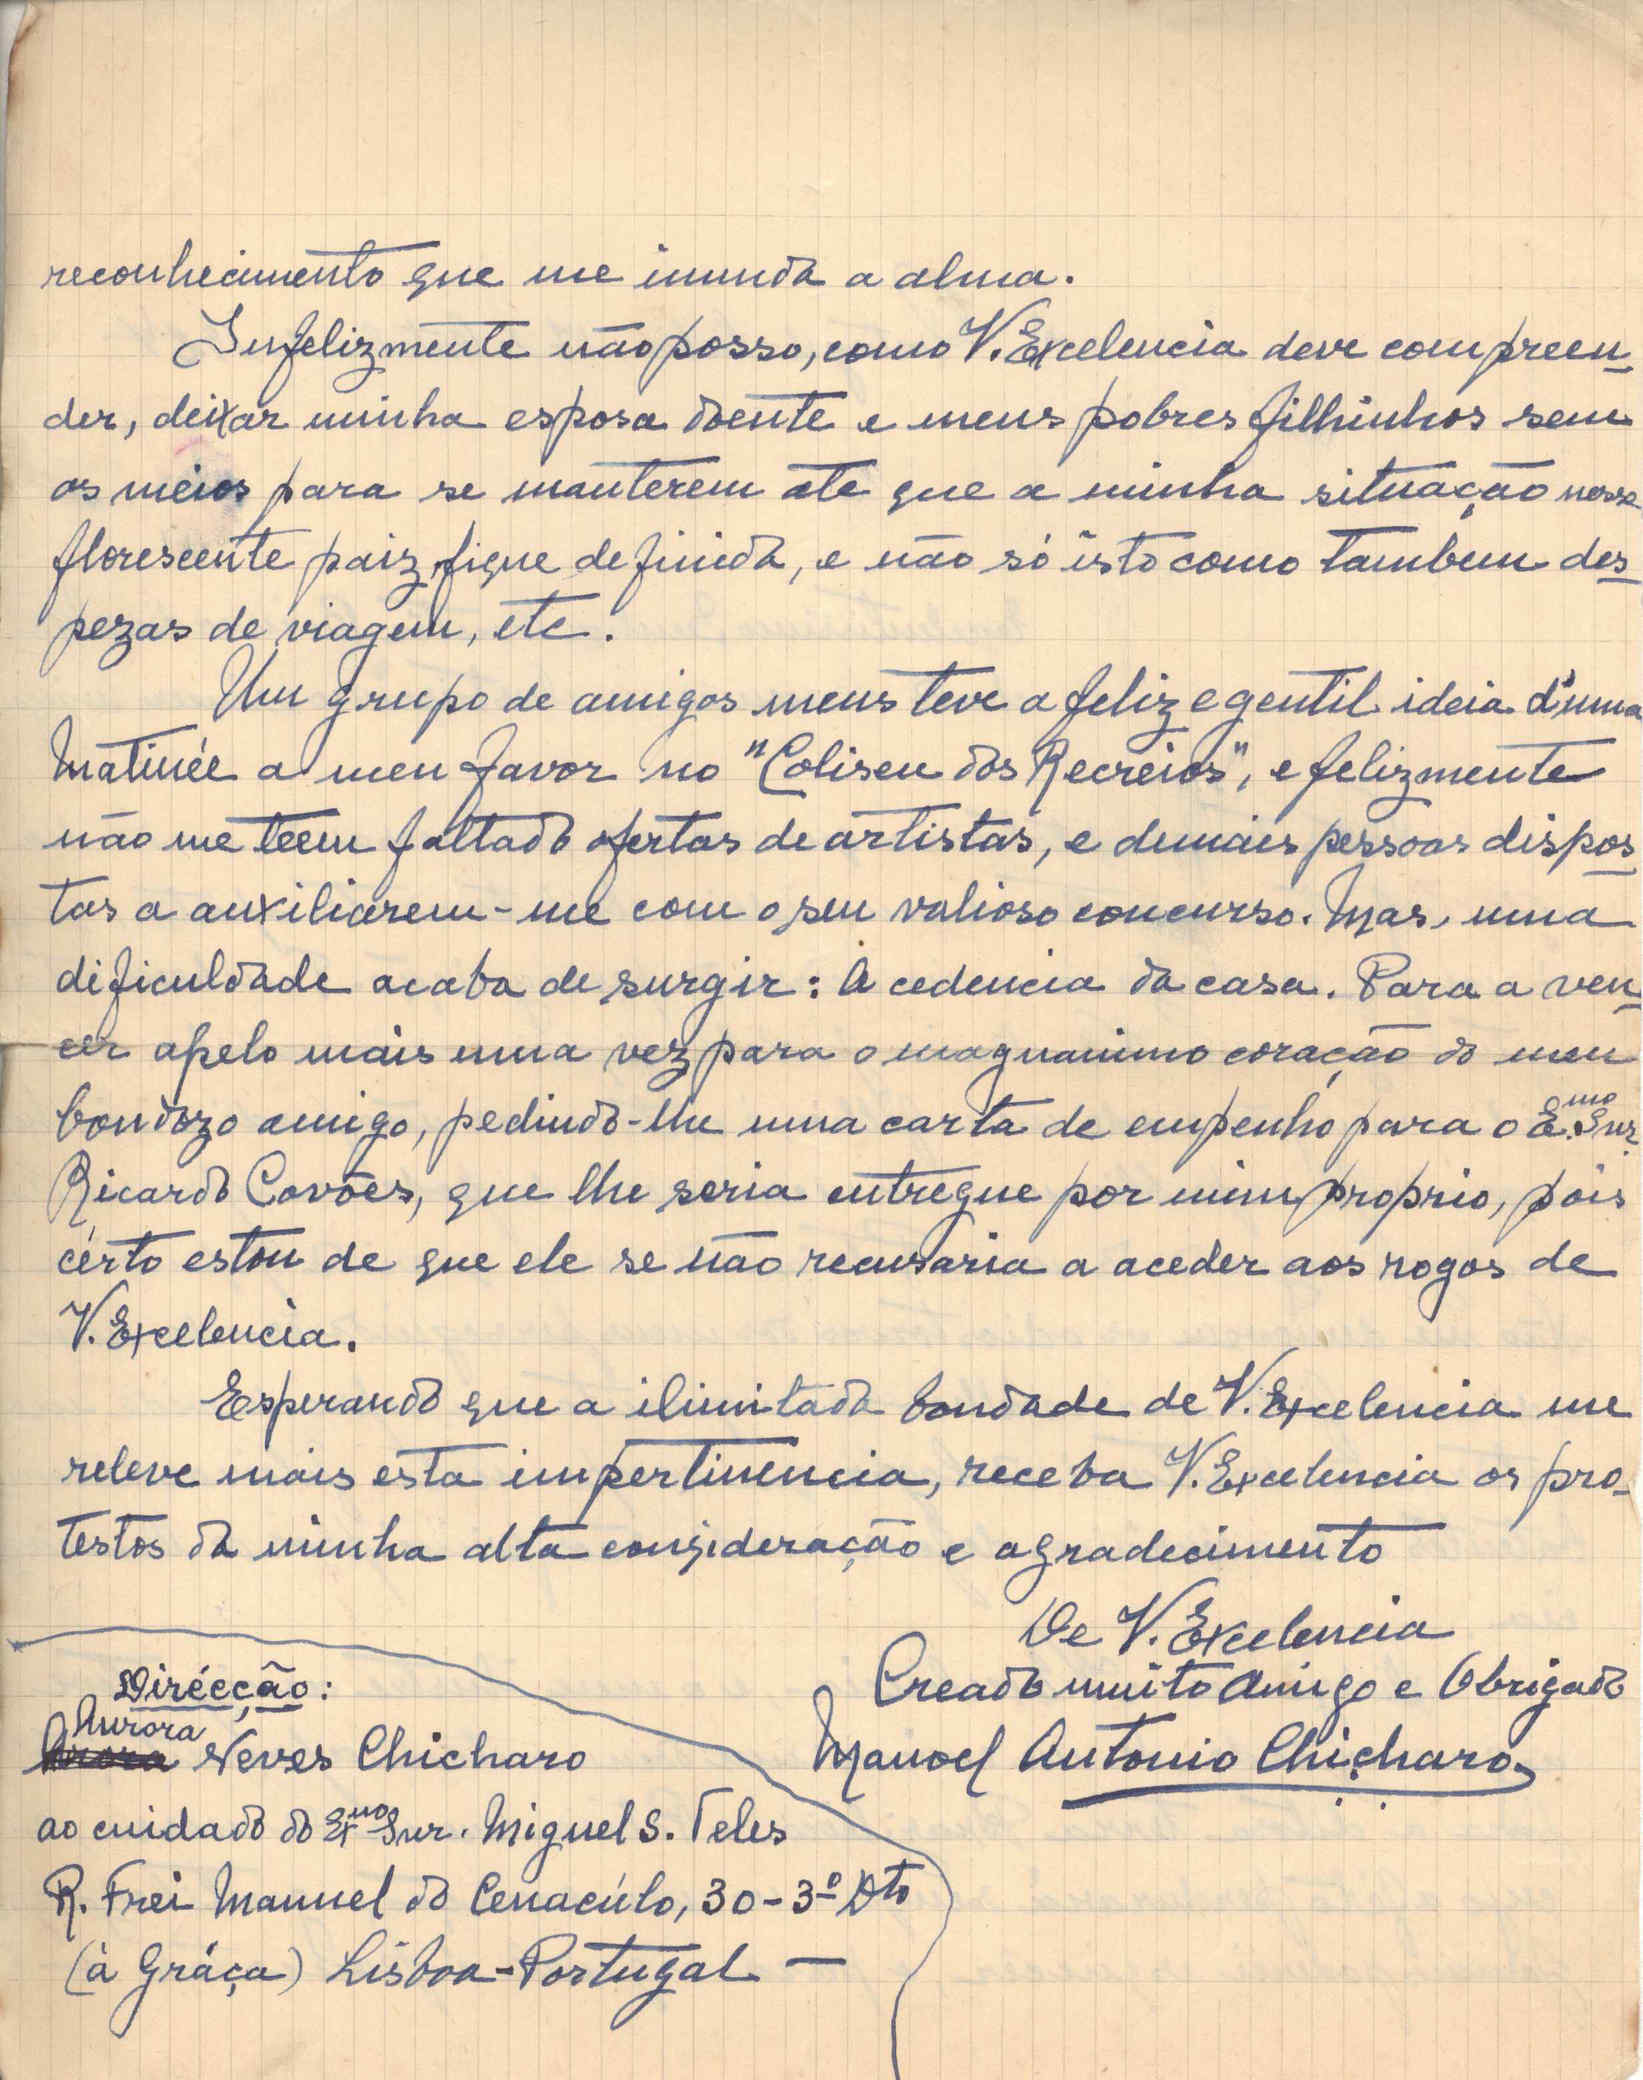 reconhecimento que me inunda a alma.
Infelizmente não posso, como V. Excelencia deve compreen-
der, deixar minha esposa doente e meus pobres filhinhos sem
os meios para se manterem ate que a minha situação nesse
florescente paiz, fique definida, e não só isto como tambem des-
pezas de viagem, etc.
Um grupo de amigos meus teve a feliz e gentil ideia d'uma
Matinée a meu favor no "Coliseu dos Recreios", e felizmente
não me teem faltado ofertas de artistas, e demais pessoas dispos-
tas a auxiliarem-me com o seu valioso concurso. Mas, uma
dificuldade acaba de surgir: A cedencia da casa. Para a ven-
cer apelo mais uma vez para o magnanimo coração do meu
bondozo amigo, pedindo-lhe uma carta de empenho para o E.mo Snr.
Ricardo Covões, que lhe seria entregue por mim proprio, pois
cérto estou de que ele se não recusaria a aceder aos rogos de
V. Excelencia.
Esperando que a ilimitada bondade de V. Excelencia me
releve mais esta impertinencia, receba V. Excelencia os pro-
testos da minha alta consideração e agradecimento
De V. Excelencia
Creado muito Amigo e Obrigado
Manoel Antonio Chicharo
Dirécção:
Aurora
Neves Chicharo
ao cuidado do Exmo Snr. Miguel S. Teles
R. Frei Manuel do Cenacúlo, 30-3º Dto
(à Gráça) Lisboa-Portugal —